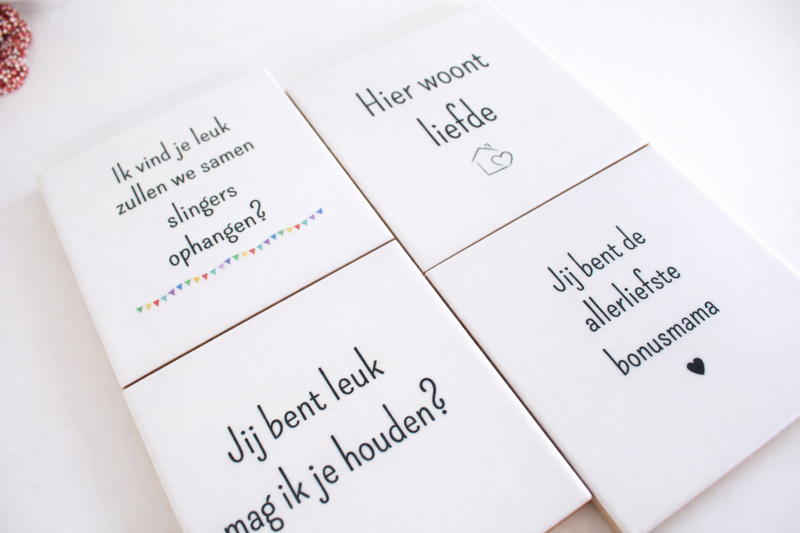 Ik vind je leuk
zullen we samen
slingers
ophangen?
Hier woont
liefde
Jij bent leuk
mag ik je houden?
Jij bent de
allerliefste
bonusmama